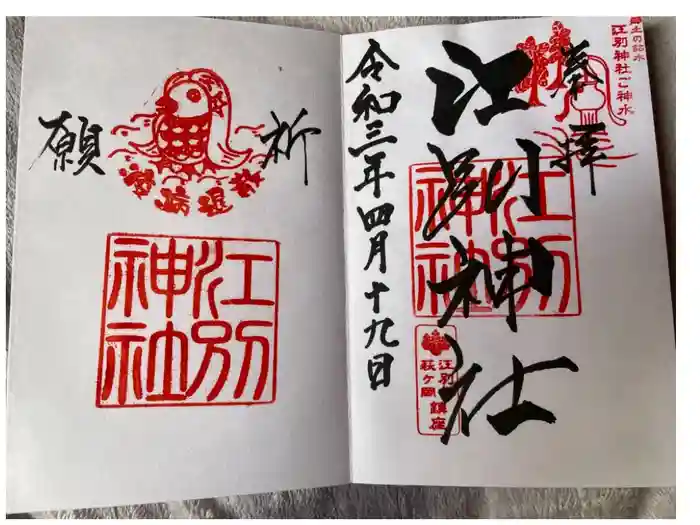 奉拝
郷土の銘水
江別神社ご神水
江別神社
江別
神社
江別
萩ヶ岡
鎮座
令和三年四月十九日
祈
願
疫病退散
江別
神社